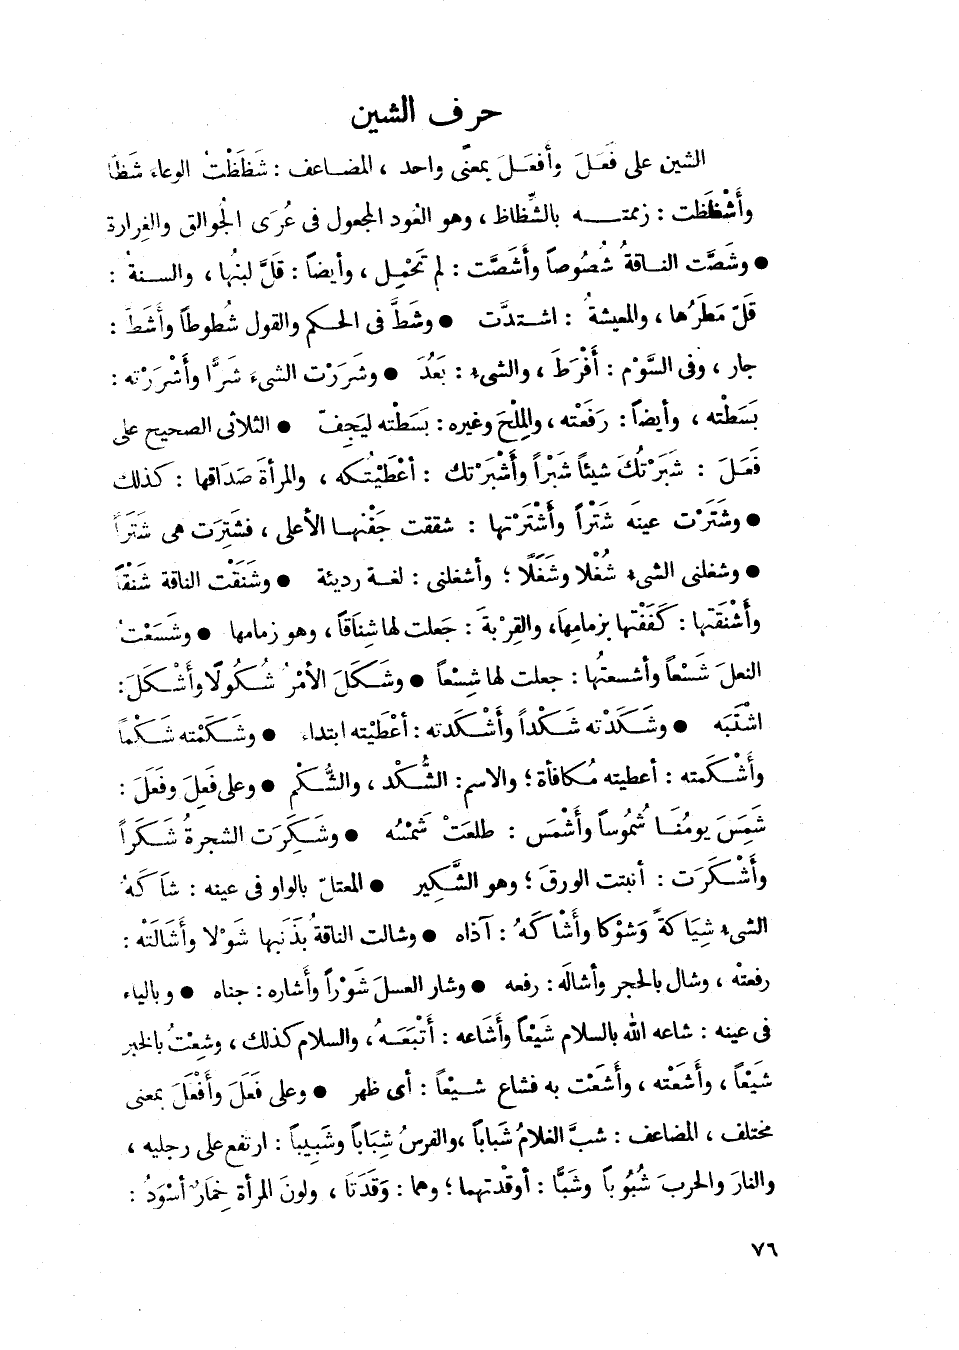 حرف الشين
الشين على فَعَـلَ وأَفعَـلَ بمعنًى واحد ، المضـاعف : شَظَظْتُ الوعاء شَظًّا
وأَشْظَظت : زممتـــه بالشِّظاظ ، وهو العُود المجعول فى عُرَى الْجوالق والغِرارة
● وشَصَّت النـاقةُ شُصُوصاً وأَشَصَّت : لم تَحْمِل ، وأيضاً : قَلَّ لبنُها ، والسـنةُ :
قَلّ مَطَرُها ، والمعيشةُ : اشـتدَّت ● وشَطَّ فى الحـكم والقول شُطوطاً وأَشَطَّ :
جار ، وفى السَّوْم : أَفْرَطَ ، والشىء : بَعُدَ ● وشَرَرْت الشىءَ شَرًّا وأَشْرَرْته :
بَسَطْته ، وأيضاً : رَفَعْته ، والمِلْحَ وغيره : بَسَطْته ليَجِفّ ● الثلاثى الصحيح على
فَعَـلَ : شَبَرْتُكَ شيئاً شَبْراً وأَشْبَرْتك : أعْطَيْتُـكه ، والمرأةَ صَدَاقها : كذلك
● وشَتَرْت عينَه شَتْراً وأَشْتَرْتها : شققت جَفْنهـا الأعلى ، فشَتِرَت هى شَتَراً
● وشغلنى الشىء شُغْلا وشَغَلًا ؛ وأشغلنى : لغـة رديئة ● وشَنَقْت الناقة شَنْقًا
وأَشْنَقَتها : كَفَفْتها بزمامِها، والقِرْبةَ : جَعلت لها شِناَقاً ، وهو زمامها ● وشَسَعْتُ
النعلَ شَسْعاً وأشسعتُها : جعلت لها شِسْعاً ● وشَـكَلَ الأمْرُ شُـكُولًا وأَشْـكَلَ:
اشْتَبَه ● وشَـكَدْته شَـكْداً وأَشْـكَدته : أعْطَيْته ابتداء ● وشَـكَمْته شَـكْماً
وأَشْـكَمته : أعطيته مُـكافأة ؛ والاسم: الشُّـكْد ، والشُّـكْم ● وعلى فَعِلَ وفَعَلَ :
شَمِسَ يومُنَـا شُمُوساً وأَشْمَس : طلعَتْ شَمْسُه ● وشَـكِرَت الشجرةُ شَـكَراً
وأَشْـكَرَت : أنبتت الورقَ ؛ وهو الشَّـكِير ● المعتلّ بالواو فى عينه : شاَكَهُ
الشىء شِيَاكَةً وَشَوْكا وأَشْاكَهُ : آذاه ● وشالت الناقةُ بذَنَبها شَوْلا وأَشَالَتْه :
رفعتْه ، وشال بالحجر وأشالَه : رفعه ● وشار العسلَ شَوْراً وأشاره : جناه ● وبالياء
فى عينه : شاعه الله بالسلام شَيْعاً وأَشَاعه : أَتْبَعَـهُ ، والسلام كذلك ، وشِعْتُ بالخبر
شَيْعاً ، وأَشَعْته ، وأَشَعْت به فشاع شـيْعاً : أى ظهر ● وعلى فَعَلَ وأَفْعَلَ بمعنى
مختلف ، المضاعف : شبَّ الغلامُ شَباباً ،والفرسُ شِبَاباً وشَبِيباً : ارتفع على رجليه ،
والنارَ والحربَ شُبُوباً وشَبًّا : أوقدْتهما ؛ وهما : وَقَدَتَا ، ولونَ المرأة خِمَارٌ أسْوَدُ :
٧٦